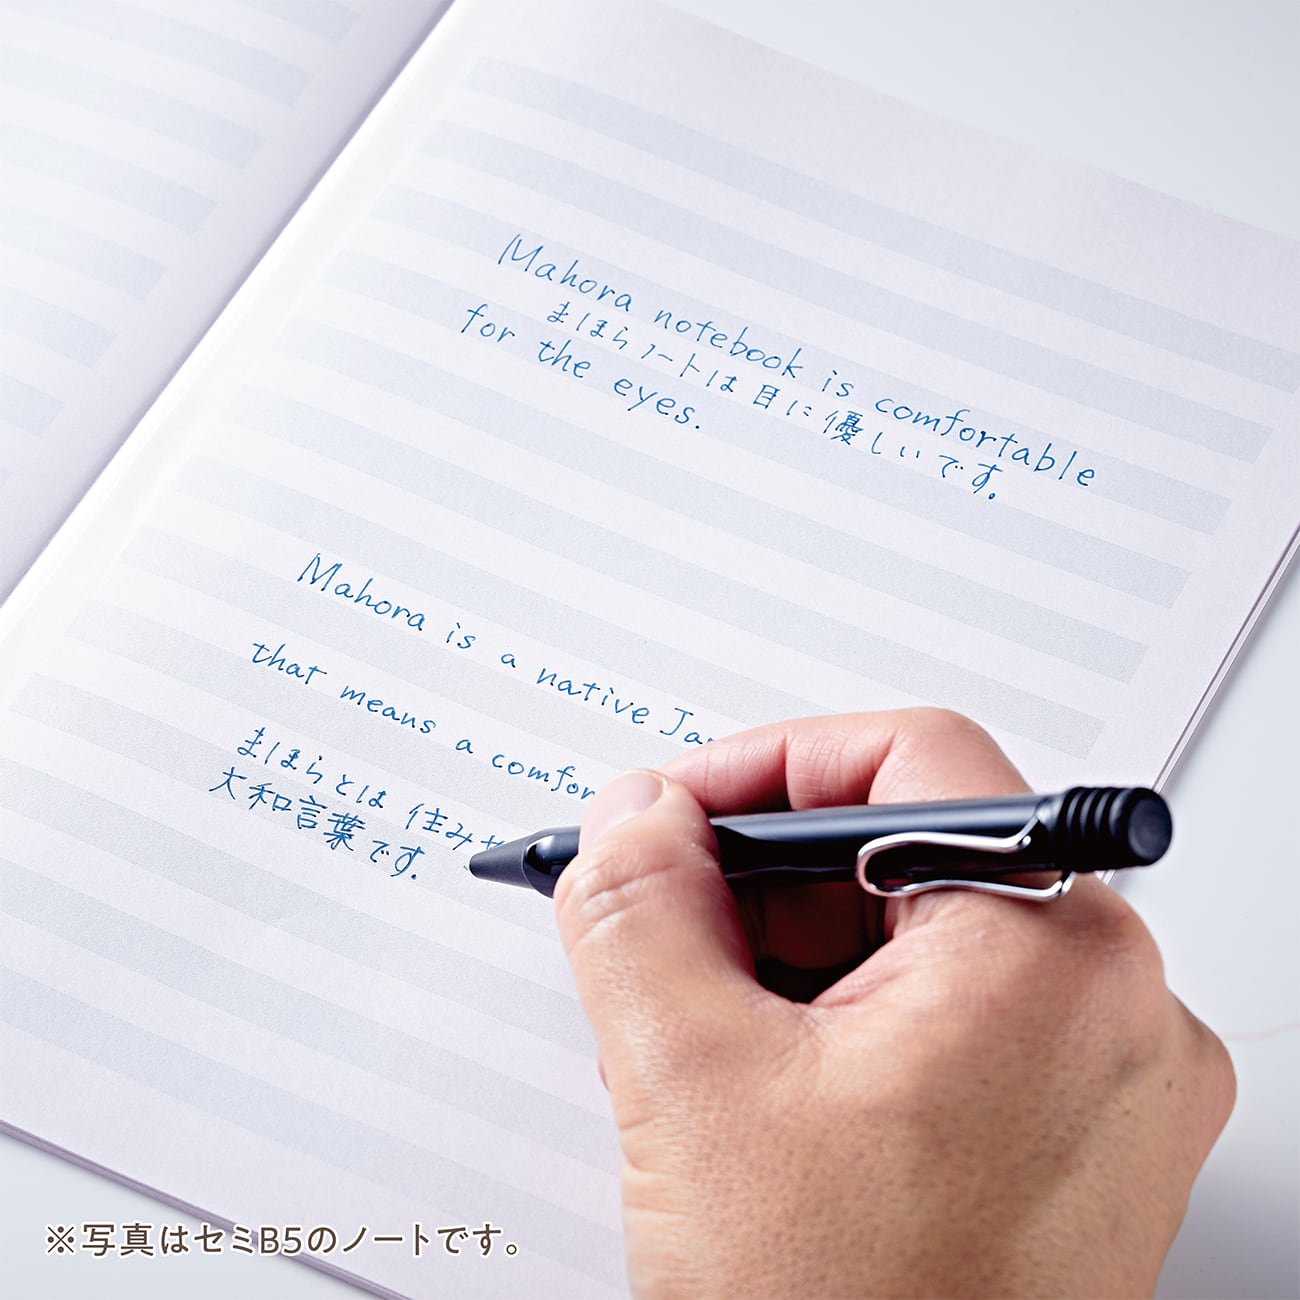 Mahora notebook is comfortable
まほらノートは目に優しいです。
for the eyes.
Mahora is a native
that means a
まほらとは 住み
大和言葉です。
※写真はセミB5のノートです。